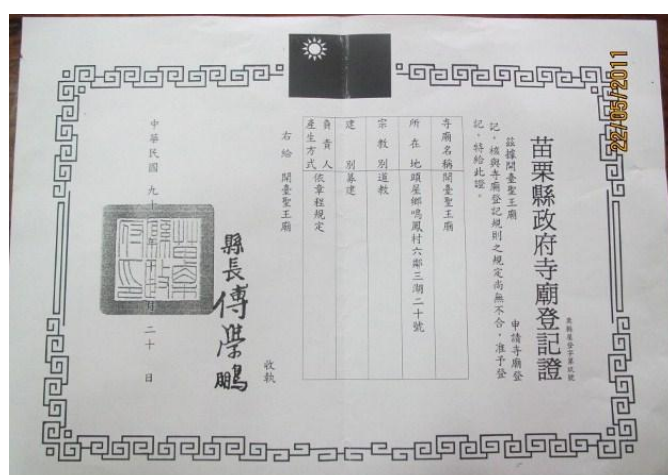 苗栗縣政府寺廟登記證
茲據開臺聖王廟 申請寺廟登
記，核與寺廟登記規則之規定尚無不合，准予登
記，特給此證。
寺廟名稱 開臺聖王廟
所在地 頭屋鄉鳴鳳村六鄰三湖二十號
宗教別 道教
建別 募建
負責人產生方式 依章程規定
右給 開臺聖王廟 收執
縣長傅學鵬
中華民國 九十 年十 月二十日
22/05/2011